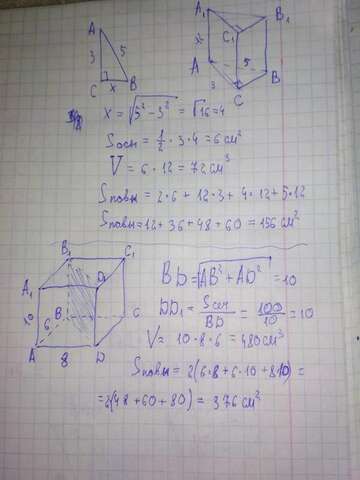 A
3 5
C x B
A₁ B₁
C₁
x
A 5 B
3
C
x = √5² - 3² = √16 = 4
Sосн = 1/2 · 3 · 4 = 6 см²
V = 6 · 12 = 72 см³
Sповы = 2·6 + 12·3 + 4·12 + 5·12
Sповы = 12 + 36 + 48 + 60 = 156 см²
B₁ C₁
A₁ D₁
10
6 B C
A 8 D
BD = √AB² + AD² = 10
DD₁ = Sсеч/BD = 100/10 = 10
V = 10 · 8 · 6 = 480 см³
Sповы = 2(6·8 + 6·10 + 8·10) =
= 2(48 + 60 + 80) = 376 см²